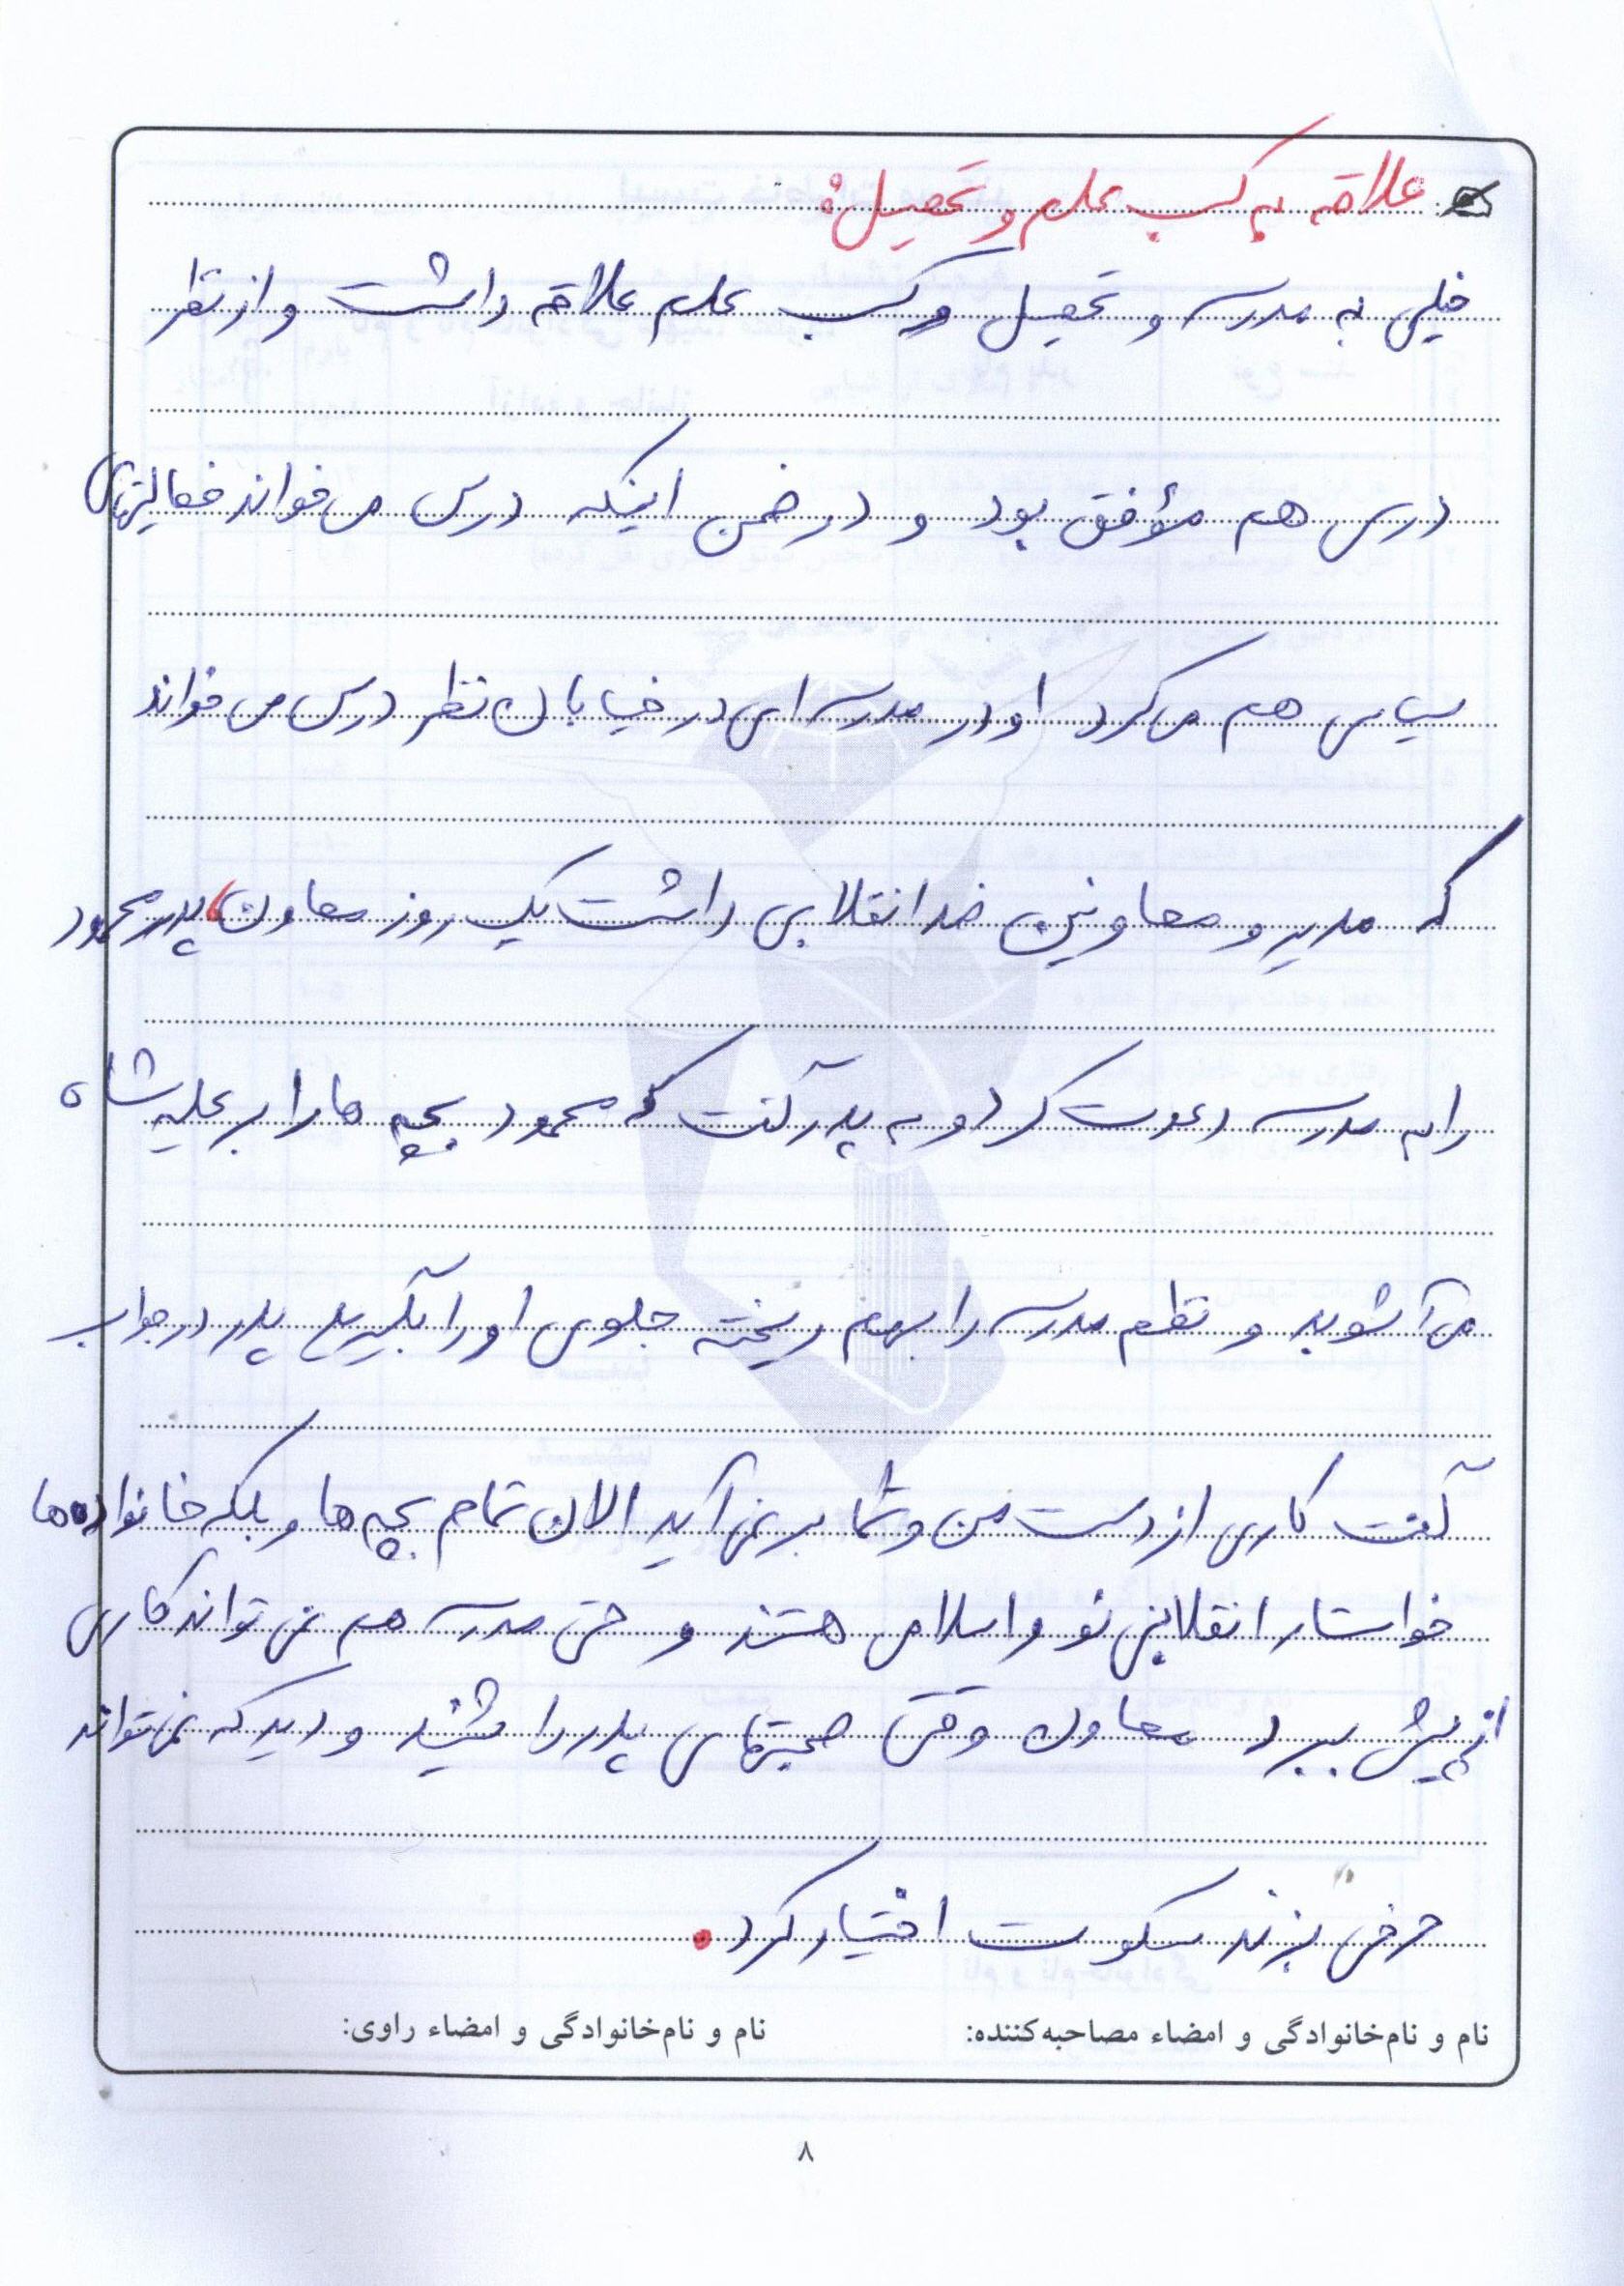 علاقه به کسب علم و تحصیل:
خیلی به مدرسه و تحصیل و کسب علم علاقه داشت و از نظر
درس هم مؤفق بود و در ضمن اینکه درس می خواند فعالیتهای
سیاسی هم می کرد او در مدرسه ای در خیابان نظر درس می خواند
که مدیر و معاونین ضد انقلابی داشت یک روز معاون، پدر محمود
را به مدرسه دعوت کرد و به پدر گفت که محمود بچه ها را بر علیه شاه
می آشوبد و نظم مدرسه را بهم ریخته جلوی او را بگیرید پدر در جواب
گفت کاری از دست من و شما بر نمی آید الان تمام بچه ها و بلکه خانواده ها
خواستار انقلابی نو و اسلامی هستند و حتی مدرسه هم نمی تواند کاری
از پیش ببرد معاون وقتی صحبتهای پدر را شنید و دید که نمی تواند
حرفی بزند سکوت اختیار کرد.
نام و نام‌خانوادگی و امضاء مصاحبه‌کننده: نام و نام‌خانوادگی و امضاء راوی:
۸